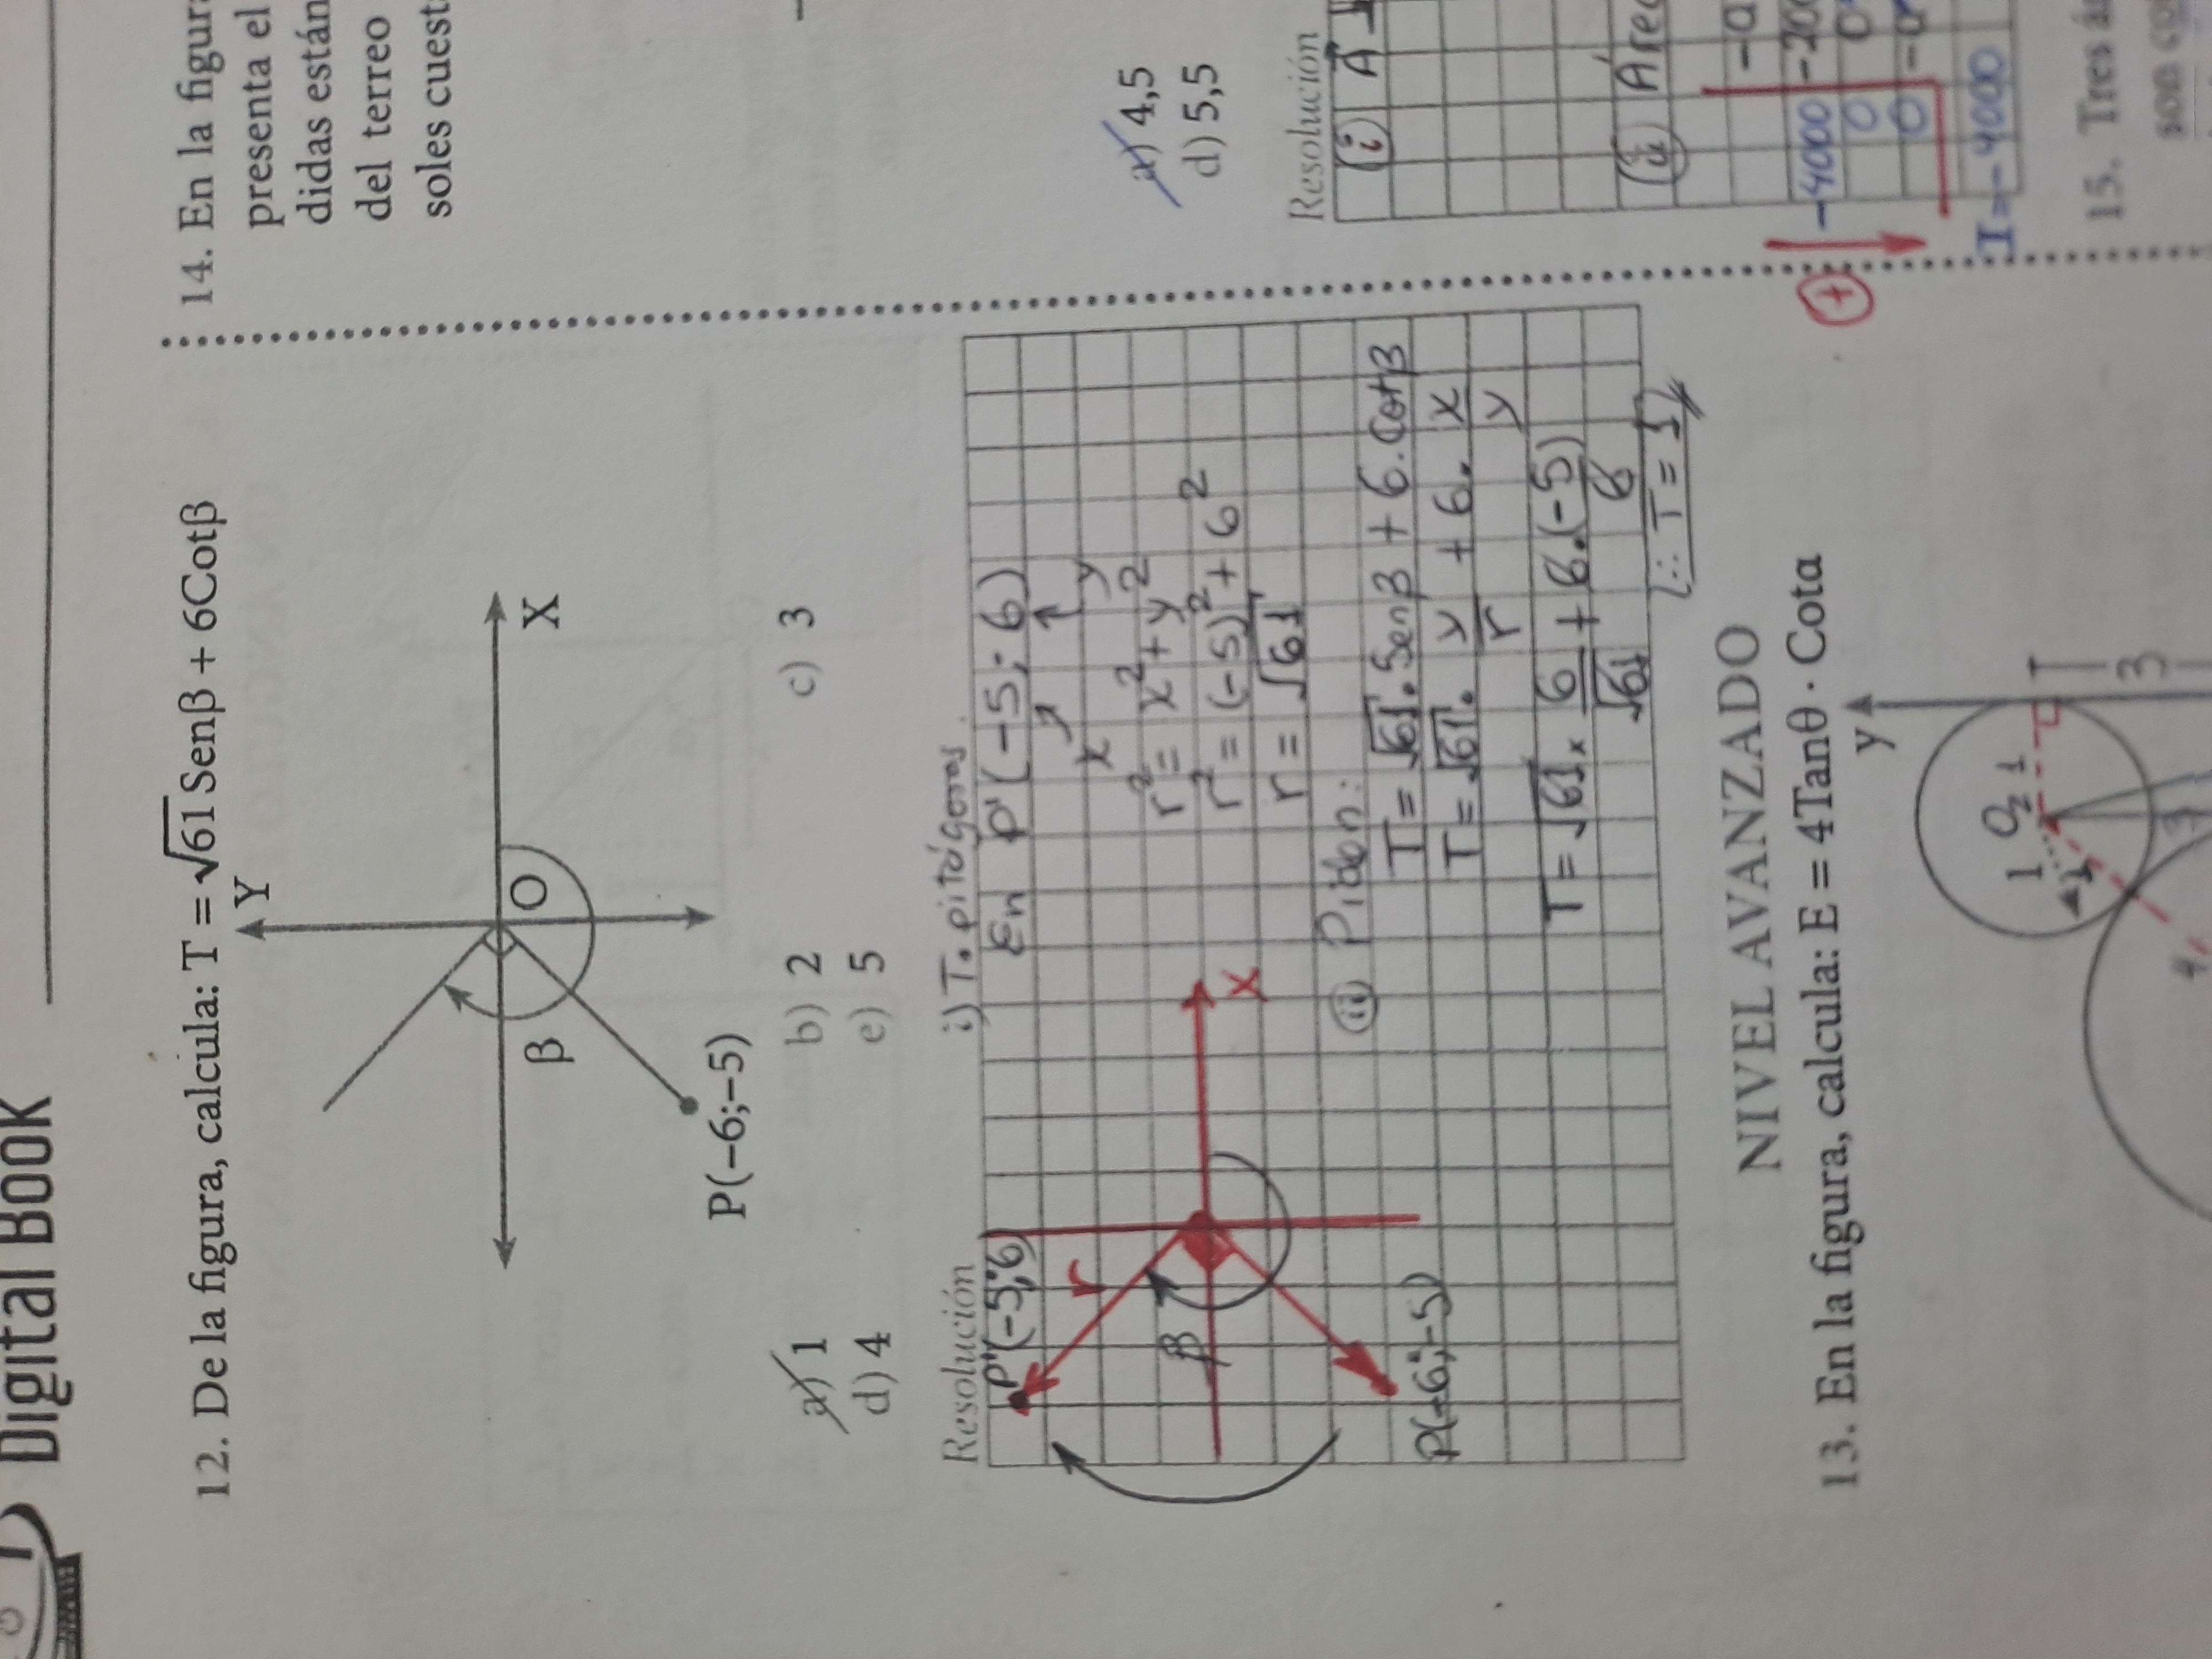 Digital Book
12. De la figura, calcula: T = √61 Senβ + 6Cotβ
Y
β
O
X
P(–6;–5)
a) 1
b) 2
c) 3
d) 4
e) 5
Resolución
i) T. pitágoras.
P'(-5;6)
r
β
x
P(-6;-5)
En P'(-5; 6)
x y
r² = x² + y²
r² = (-5)² + 6²
r = √61
ii) Piden:
T = √61 . Senβ + 6. Cotβ
T = √61 . y/r + 6. x/y
T = √61 x 6/√61 + 6.(-5)/6
∴ T = 1
NIVEL AVANZADO
13. En la figura, calcula: E = 4Tanθ · Cotα
y
1 O₂ 1
1
3
4
14. En la figura
presenta el
didas están
del terreo
soles cuest
a) 4,5
d) 5,5
Resolución
i) A
ii) Áre
-a
-4000 -20
0 0
0 -a
+
I = -4000
15. Tres á
son co